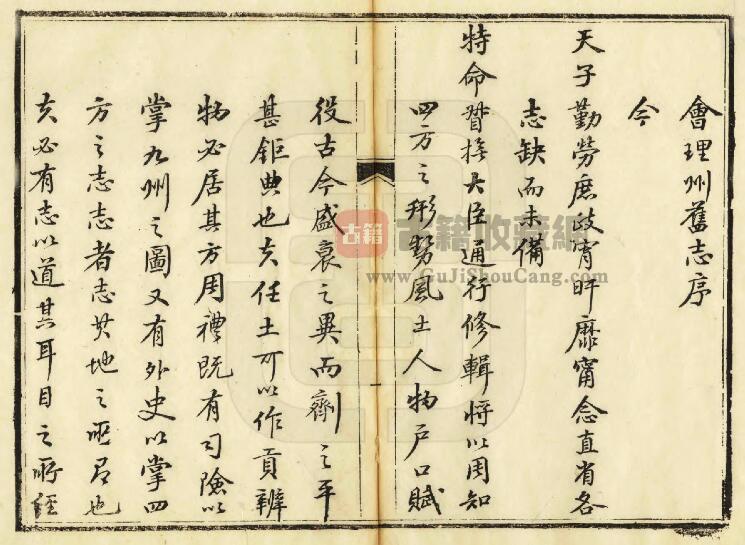 會理州舊志序
今
天子勤勞庶政宵旰靡甯念直省各
志缺而未備
特命督撫大臣通行修輯將以周知
四方之形勢風土人物戶口賦
役古今盛衰之異而劑之平
甚鉅典也夫任土可以作貢辨
物必居其方周禮既有司險以
掌九州之圖又有外史以掌四
方之志志者志其地之所有也
夫必有志以道其耳目之所經
古籍 古籍收藏網
www.GuJiShouCang.com